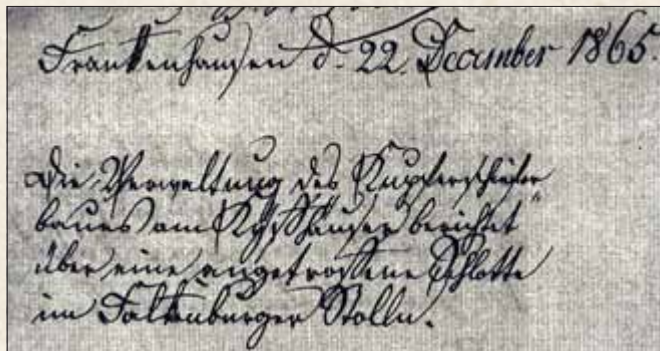 Frankenhausen d. 22. December 1865.
Die Verwaltung des Kupferschiefer
baues am Kyffhäuser berichtet
über eine angetroffene Schlotte
im Falkenburger Stolln.